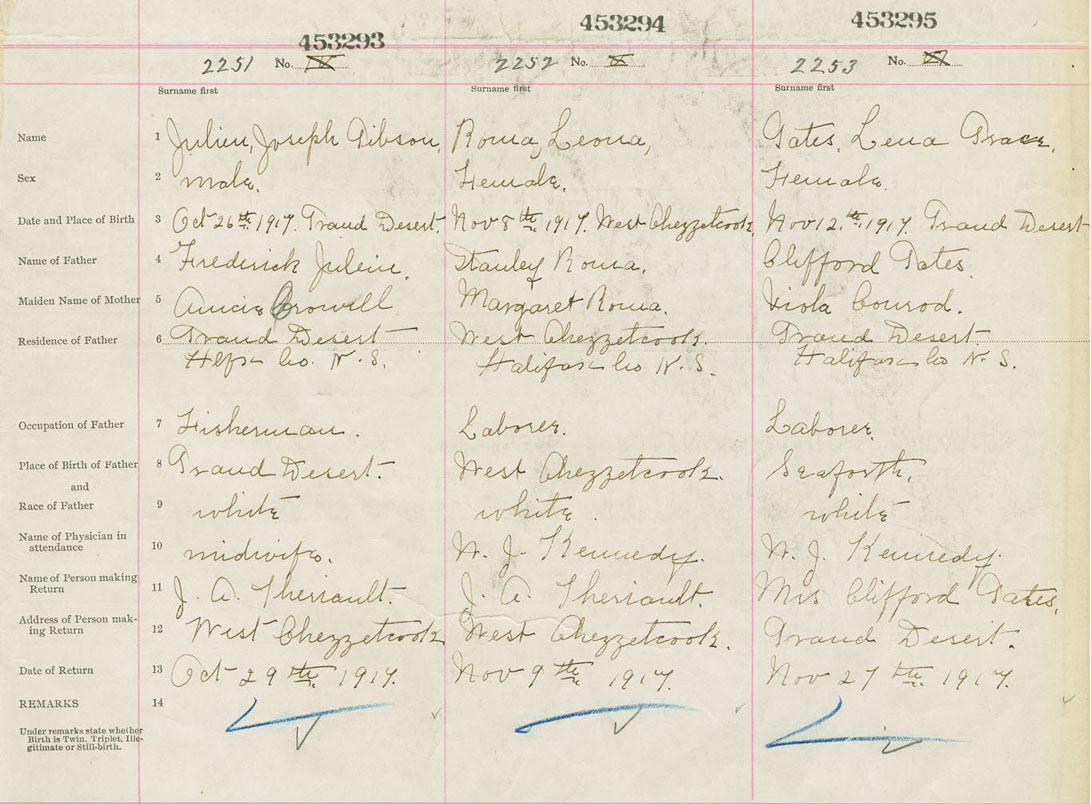 453293 453294 453295
2251 No. IV 2252 No. V 2253 No. VI
Surname first Surname first Surname first
Name 1 Julien, Joseph Gibson, Roma, Leona, Gates, Lena Grace,
Sex 2 male. Female. Female.
Date and Place of Birth 3 Oct 26th. 1917. Grand Desert. Nov 8th. 1917. West Chezzetcook Nov 12.th. 1917. Grand Desert
Name of Father 4 Frederick Julien. Stanley Roma. Clifford Gates.
Maiden Name of Mother 5 Crowell Margaret Roma. Viola Conrod.
Residence of Father 6 Grand Desert West Chezzetcook. Grand Desert.
Hlfx Co. N. S. Halifax Co N. S. Halifax Co N. S.
Occupation of Father 7 Fisherman. Laborer. Laborer.
Place of Birth of Father 8 Grand Desert. West Chezzetcook. Seaforth.
and
Race of Father 9 white white. white
Name of Physician in
attendance 10 midwife. W. J. Kennedy. W. J. Kennedy.
Name of Person making
Return 11 J. A. Theriault. J. A. Theriault. Mrs Clifford Gates.
Address of Person mak-
ing Return 12 West Chezzetcook West Chezzetcook. Grand Desert.
Date of Return 13 Oct 29th. 1917. Nov 9th. 1917. Nov 27th. 1917.
REMARKS 14
Under remarks state whether
Birth is Twin, Triplet, Ille-
gitimate or Still-birth.